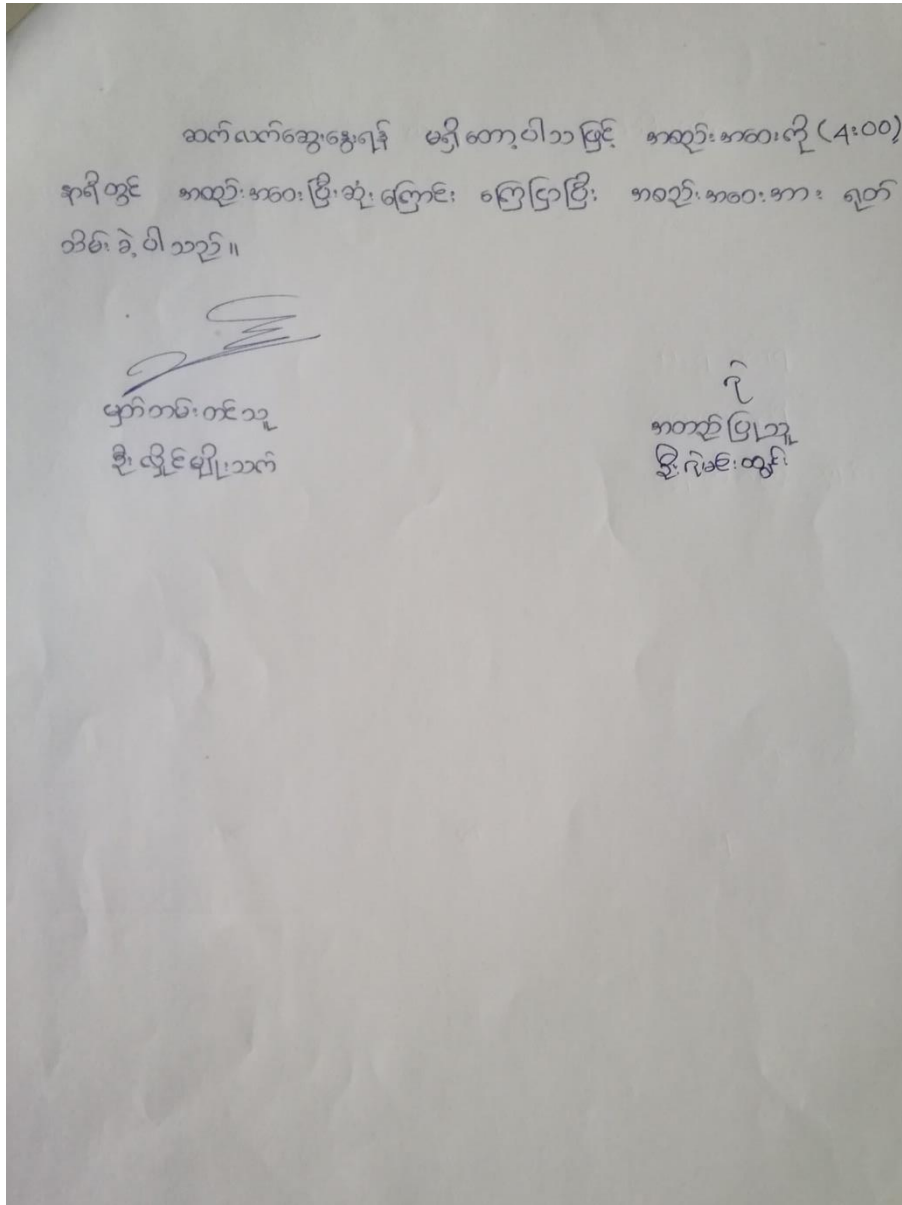 ဆက်လက်ဆွေးနွေးရန် မရှိတော့ပါသဖြင့် အစည်းအဝေးကို (4:00)
နာရီတွင် အစည်းအဝေးပြီးဆုံးကြောင်း ကြေငြာပြီး အစည်းအဝေးအား ရုတ်
သိမ်းခဲ့ပါသည်။
မှတ်တမ်းတင်သူ
ဦးလှိုင်မျိုးသက်
အတည်ပြုသူ